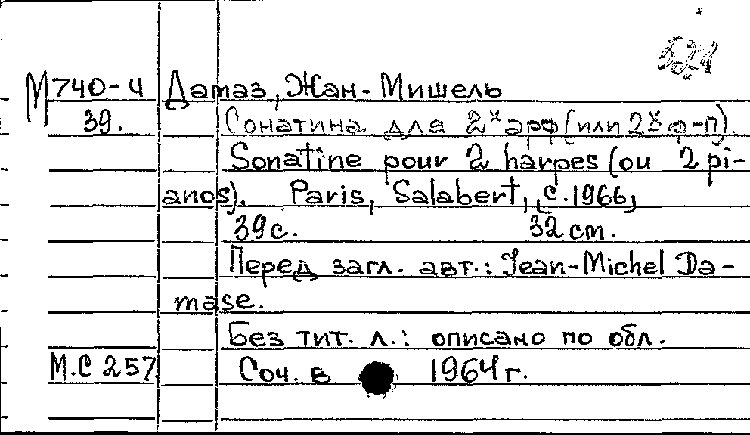 М740-4 Дамаз, Жан-Мишель
39. Сонатина для 2х арф (или 2х ф-п)
Sonatine pour 2 harpes (ou 2 pi-
anos). Paris, Salabert, с. 1966,
39с. 32 см.
Перед загл. авт.: Jean-Michel Da-
mase.
Без тит. л.: описано по обл.
М.С 257 Соч. в 1964 г.